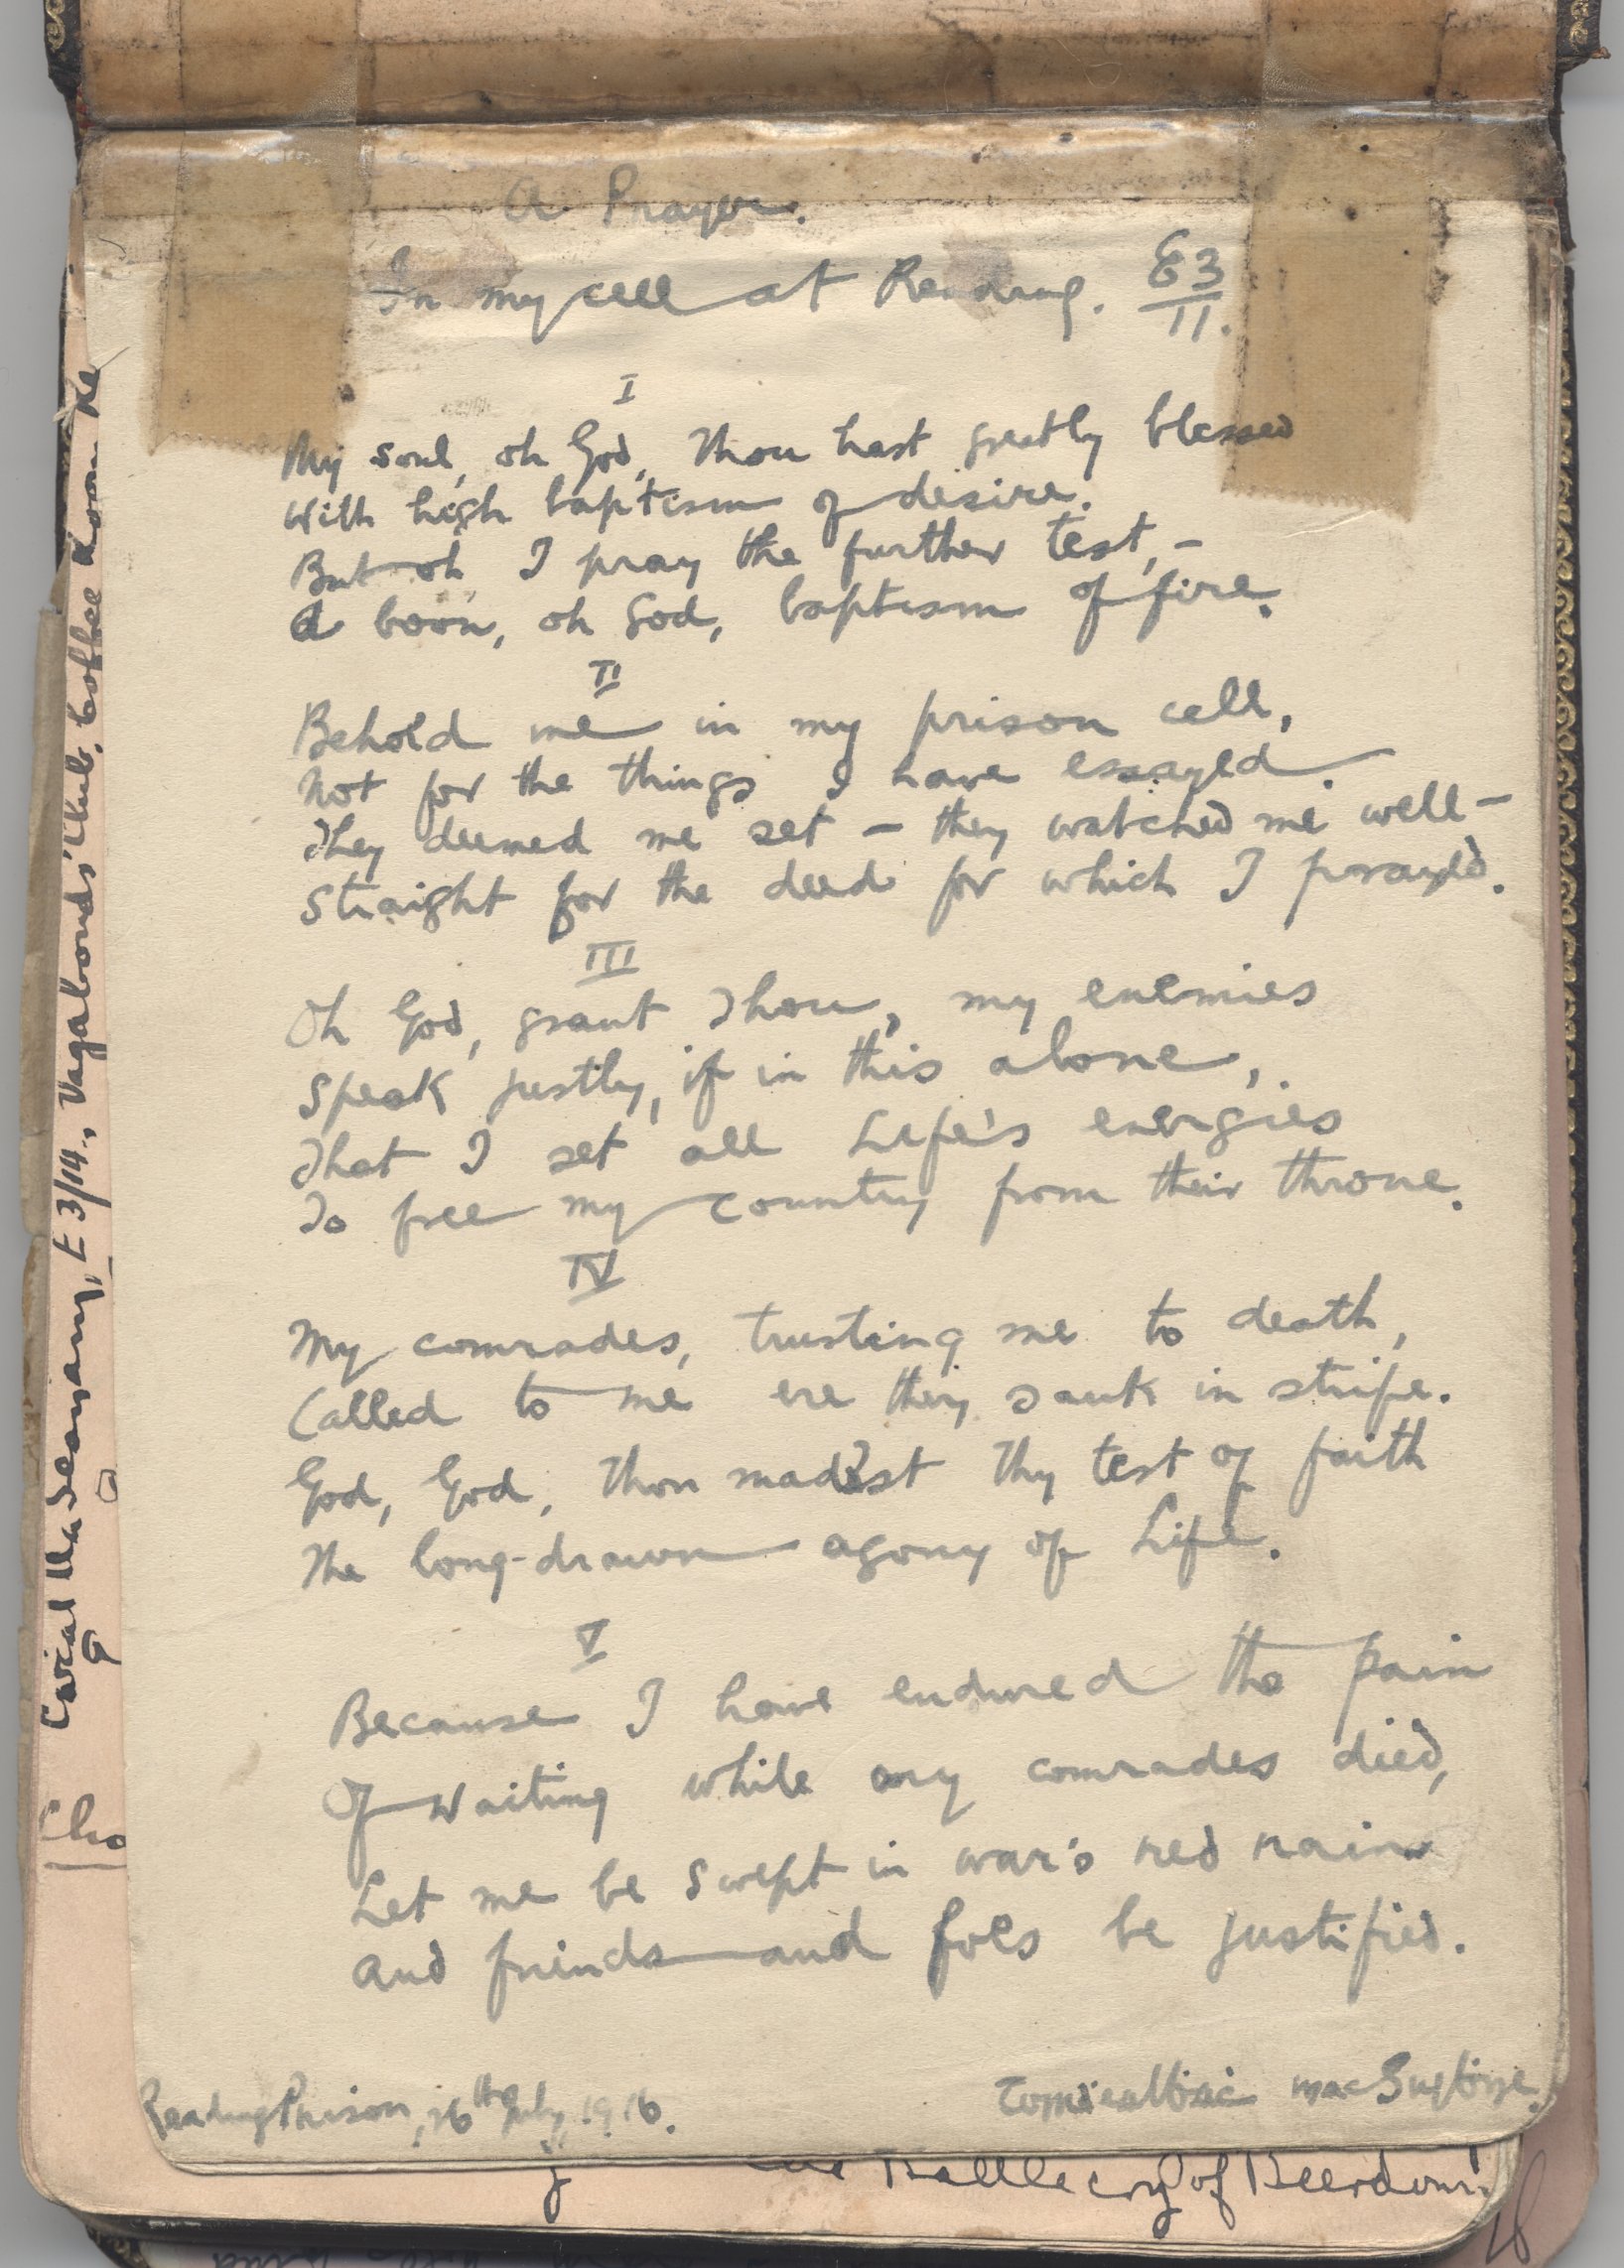 A Prayer.
In my cell at Reading. E3/11.
I
My soul, oh God, Thou hast greatly blessed
With high baptism of desire.
But oh I pray the further test, -
A boon, oh God, baptism of fire.
II
Behold me in my prison cell,
Not for the things I have essayed.
They deemed me set - they watched me well -
Straight for the deed for which I prayed.
III
Oh God, grant Thou, my enemies
Speak justly, if in this alone,
That I set all Life's energies
To free my country from their throne.
IV
My comrades, trusting me to death,
Called to me ere they sank in strife.
God, God, Thou madest Thy test of faith
The long-drawn agony of Life.
V
Because I have endured the pain
Of waiting while my comrades died,
Let me be swept in war's red rain
And friends and foes be justified.
Reading Prison, 16th July, 1916.
mac Suibne.
E 3/14., Vagabonds' Club, Coffee Room
Battle cry of Beerdom!